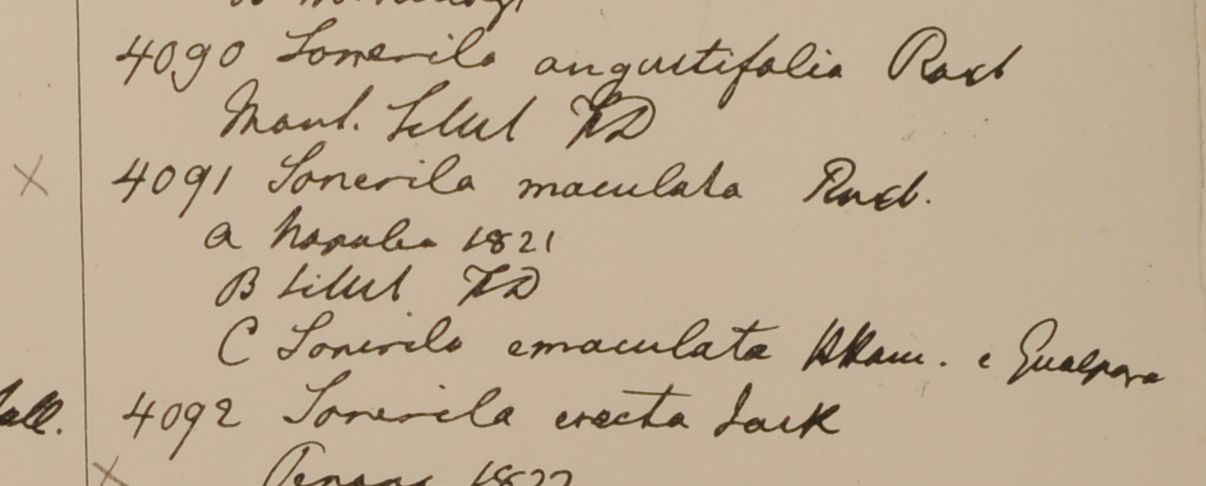 4090 Sonerila angustifolia Roxb
Mont. Silhet FD
4091 Sonerila maculata Roxb.
a Napalia 1821
B Silhet FD
C Sonerila emaculata HHam. e Gualpara
all. 4092 Sonerila erecta Jack
Penang 1822